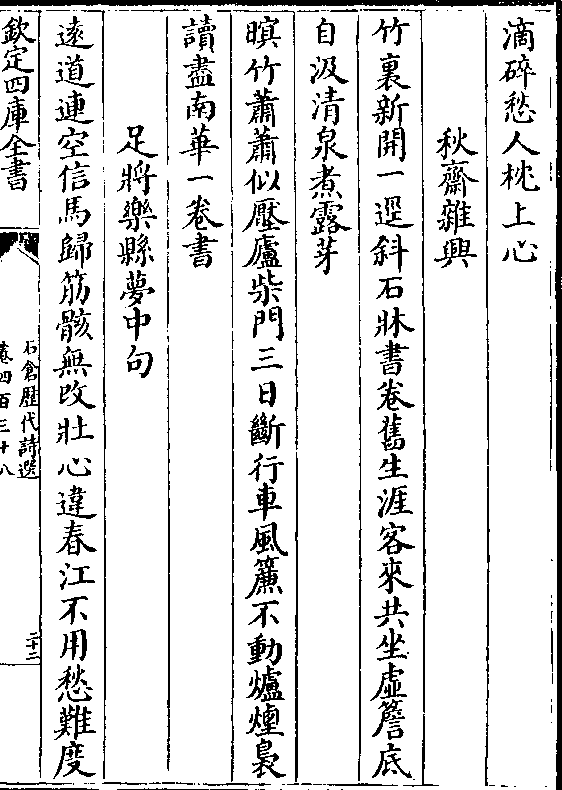 滴碎愁人枕上心
秋齋雜興
竹裏新開一逕斜石牀書卷舊生涯客來共坐虛簷底
自汲清泉煮露芽
暝竹蕭蕭似壓廬柴門三日斷行車風簾不動爐煙裊
讀盡南華一卷書
足將樂縣夢中句
遠道連空信馬歸筋骸無改壯心違春江不用愁難度
欽定四庫全書
石倉歷代詩選
卷四百三十八
二十二